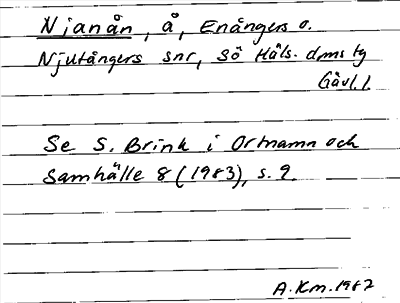 Njanån, å, Enångers o.
Njutångers snr, Sö Häls. dms tg
Gävl. l.
Se S. Brink i Ortnamn och
Samhälle 8 (1983), s. 9.
A.Km. 1987